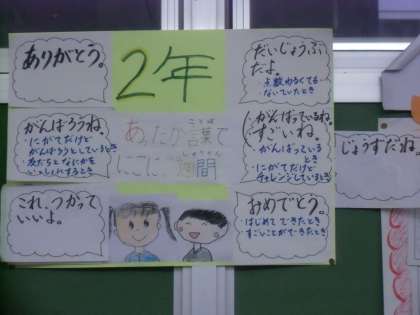 ありがとう。
2年
だいじょうぶ
だよ。
・点数わるくてる
・ないていたとき
がんばろうね。
・にがてだけど
がんばろうとしているとき
・友だちとなにかを
するとき
ことば
あったか言葉で
しゅうかん
にこにこ週間
がんばっているね。
すごいね。
・がんばっている
とき
・にがてだけど
チャレンジしているとき
じょうずだね。
これ、つかって
いいよ。
おめでとう。
・はじめてできたとき
・すごいことができたとき